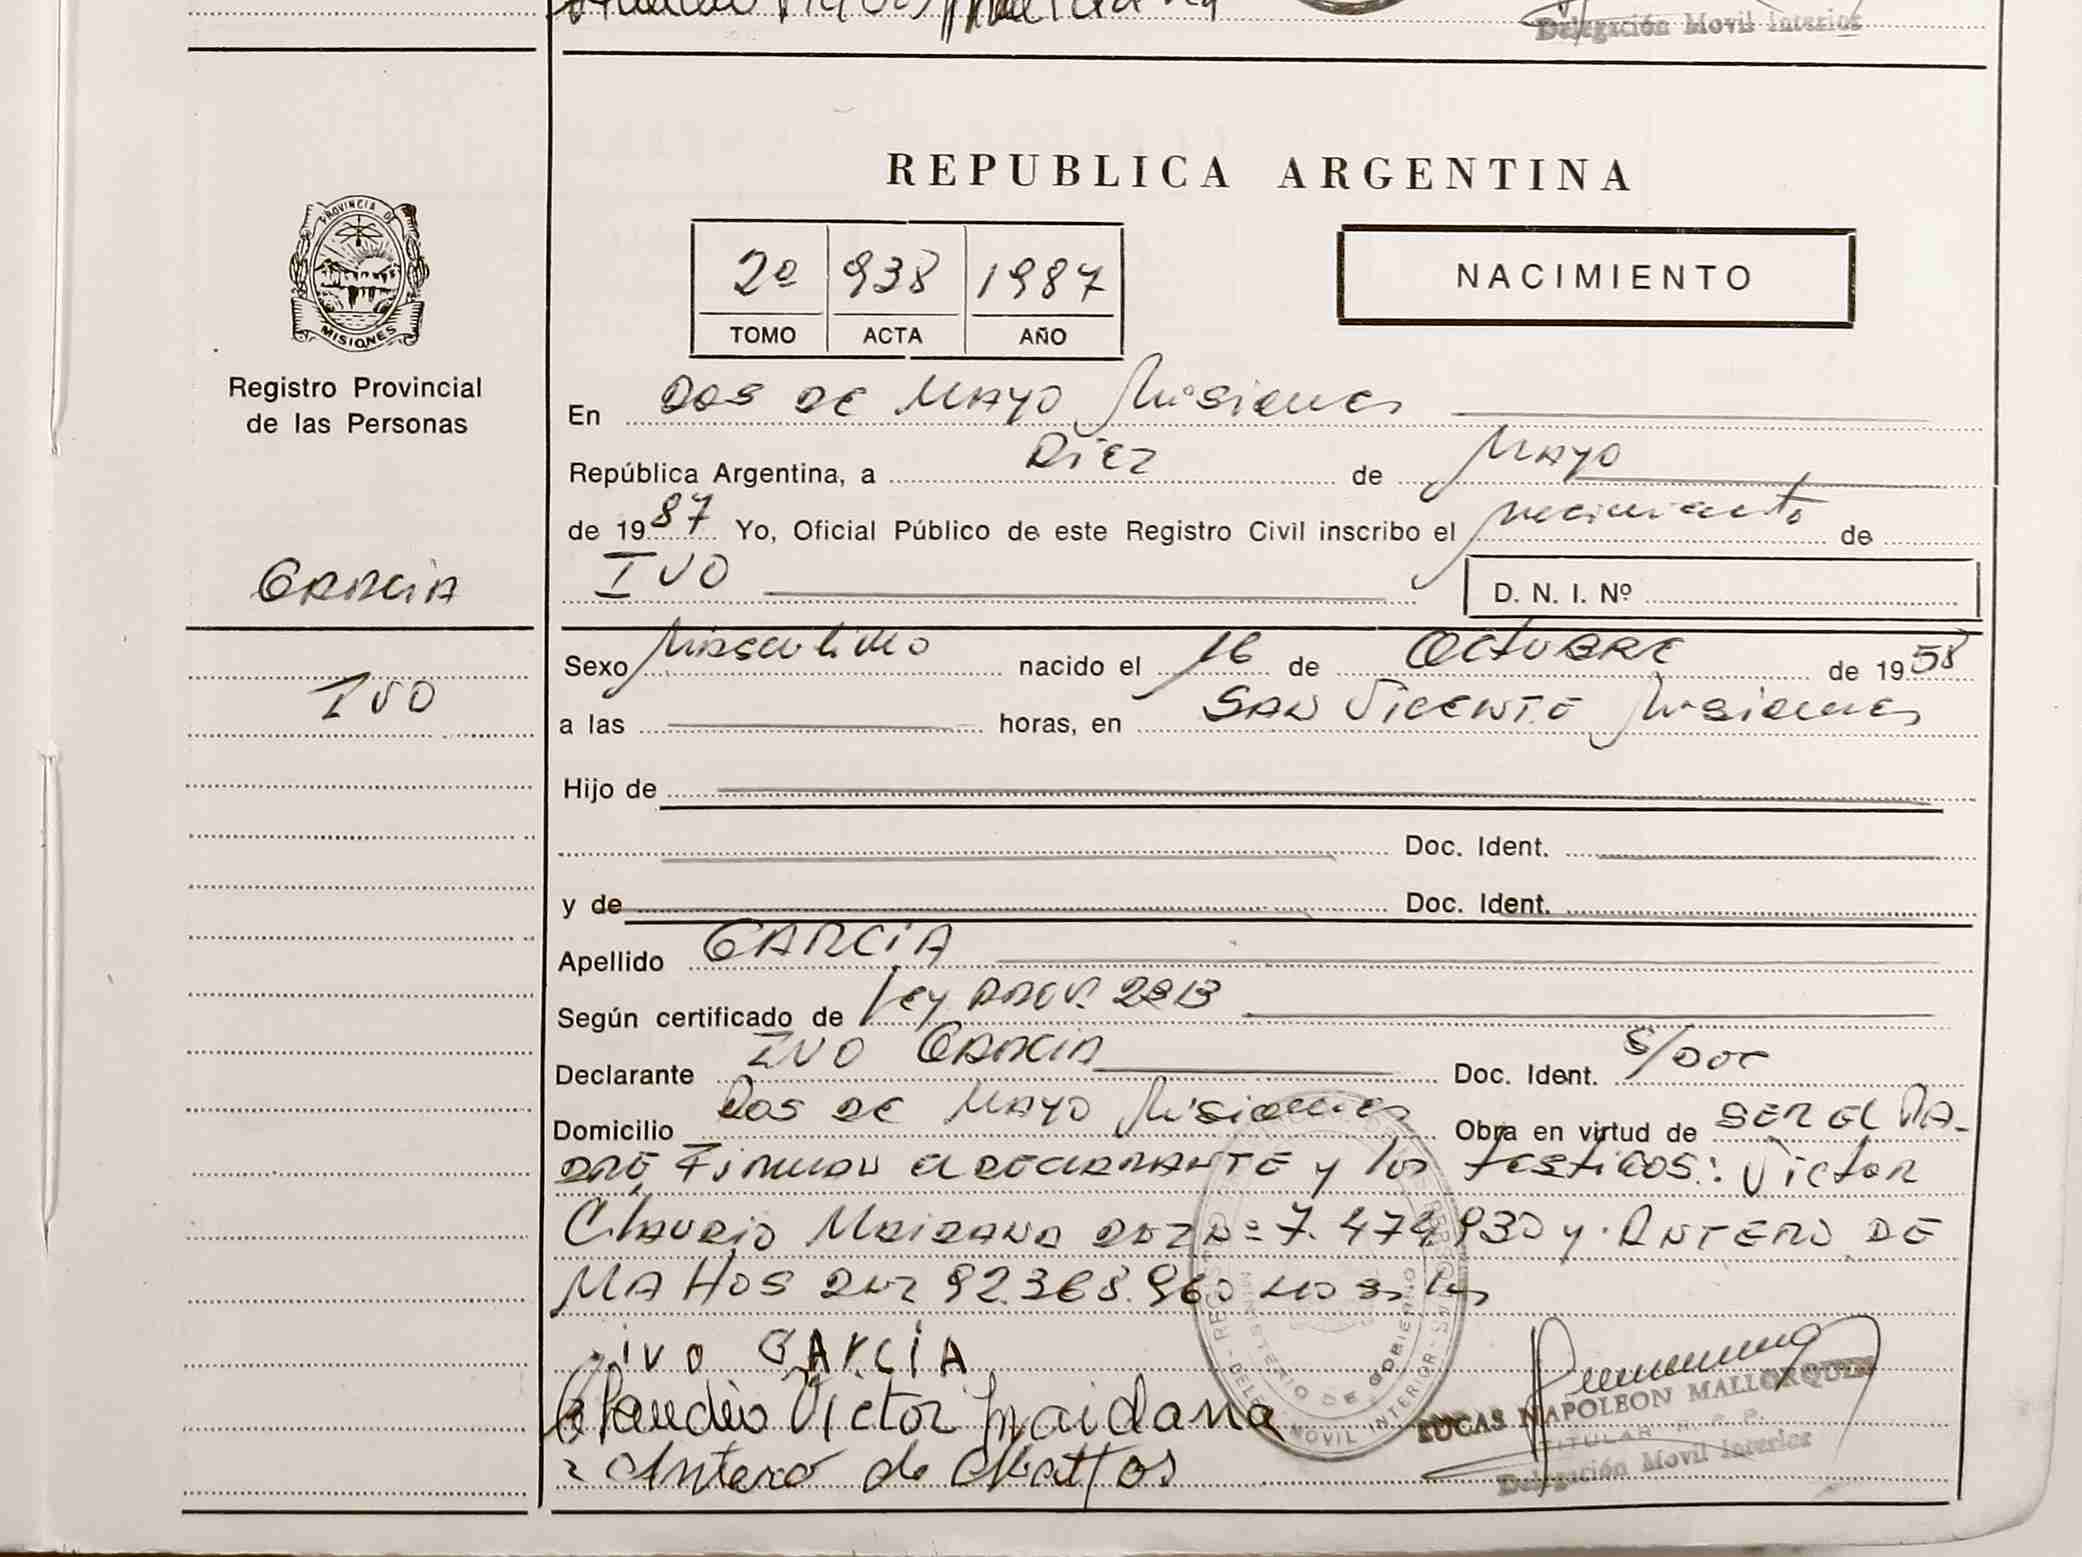 Delegación Movil Interior
REPUBLICA ARGENTINA
PROVINCIA DE
MISIONES
Registro Provincial
de las Personas
2º 938 1987
TOMO ACTA AÑO
NACIMIENTO
En Dos de Mayo Misiones
República Argentina, a Diez de Mayo
de 1987 Yo, Oficial Público de este Registro Civil inscribo el nacimiento de
GARCIA
IVO D. N. I. Nº
Sexo Masculino nacido el 16 de Octubre de 1958
IVO
a las horas, en San Vicente Misiones
Hijo de
Doc. Ident.
y de Doc. Ident.
Apellido GARCIA
Según certificado de Ley Prov. 2813
Declarante IVO GARCIA Doc. Ident. S/Doc
Domicilio Dos de Mayo Misiones Obra en virtud de SER EL PA-
DRE, Firman el declarante y los testigos: Victor
Claudio Maidana DNI Nº 7.474.930 y Antero DE
MATTOS DNI 92.368.960
ivo GARCIA
Claudio Victor Maidana
Antero de Mattos
LUCAS NAPOLEON MALLORQUIN
TITULAR R. P. P.
Delegación Movil Interior
MINISTERIO DE GOBIERNO